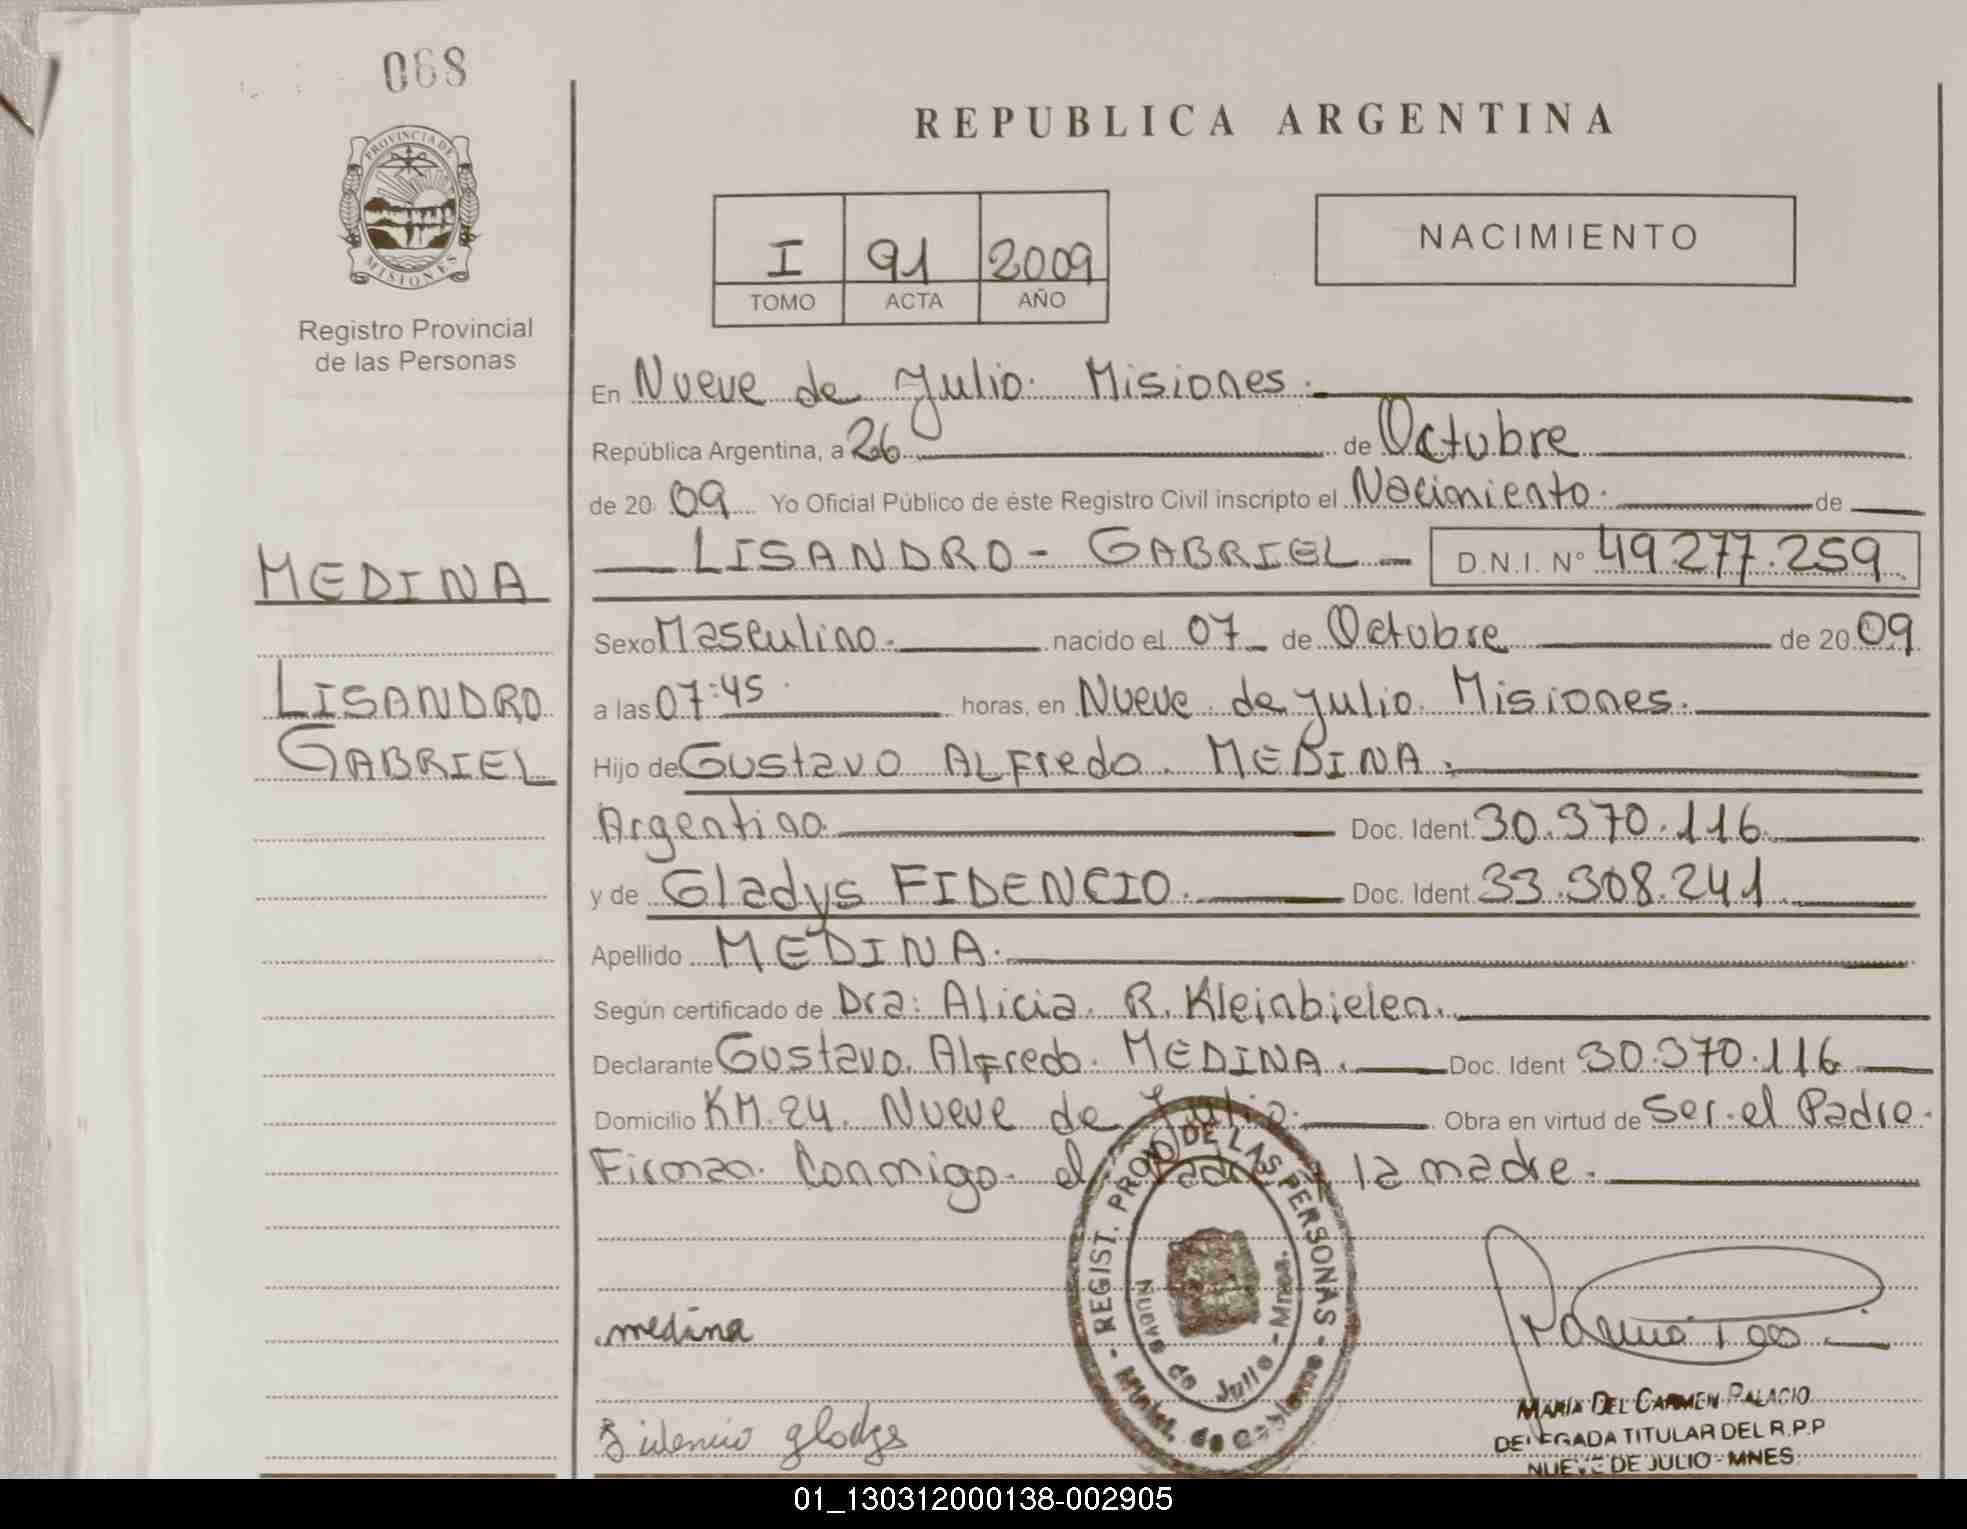 068
PROVINCIA DE
MISIONES
Registro Provincial
de las Personas
REPUBLICA ARGENTINA
I 91 2009
TOMO ACTA AÑO
NACIMIENTO
En Nueve de Julio. Misiones.
República Argentina, a 26 de Octubre
de 2009 Yo Oficial Público de éste Registro Civil inscripto el Nacimiento. de
MEDINA
LISANDRO - GABRIEL - D.N.I. Nº 49.277.259
Sexo Masculino. nacido el 07 de Octubre de 2009
LISANDRO
GABRIEL
a las 07:45 horas, en Nueve de Julio. Misiones.
Hijo de Gustavo ALFredo. MEDINA.
Argentino. Doc. Ident. 30.370.116.
y de Gladys FIDENCIO. Doc. Ident. 33.308.241.
Apellido MEDINA.
Según certificado de Dra: Alicia. R. Kleinbielen.
Declarante Gustavo. Alfredo. MEDINA. Doc. Ident 30.370.116
Domicilio KM.24. Nueve de Julio. Obra en virtud de Ser el Padre.
Firman Conmigo el Padre y la madre.
REGIST. PROV. DE LAS PERSONAS - Minist. de Gobierno -
Nueve de Julio - Mnes.
medina
Fidencio gladys
MARÍA DEL CARMEN PALACIO
DELEGADA TITULAR DEL R.P.P
NUEVE DE JULIO - MNES
01_130312000138-002905